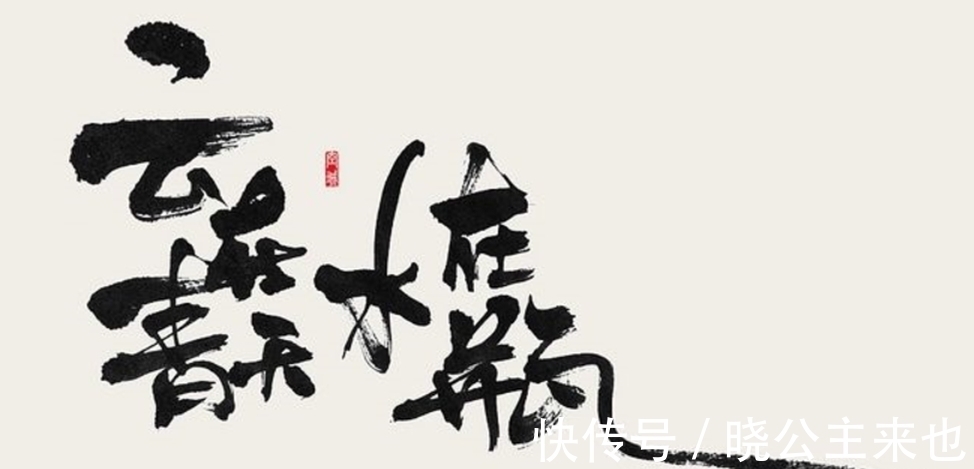 云在青天
水在瓶
快传号 / 晓公主来也